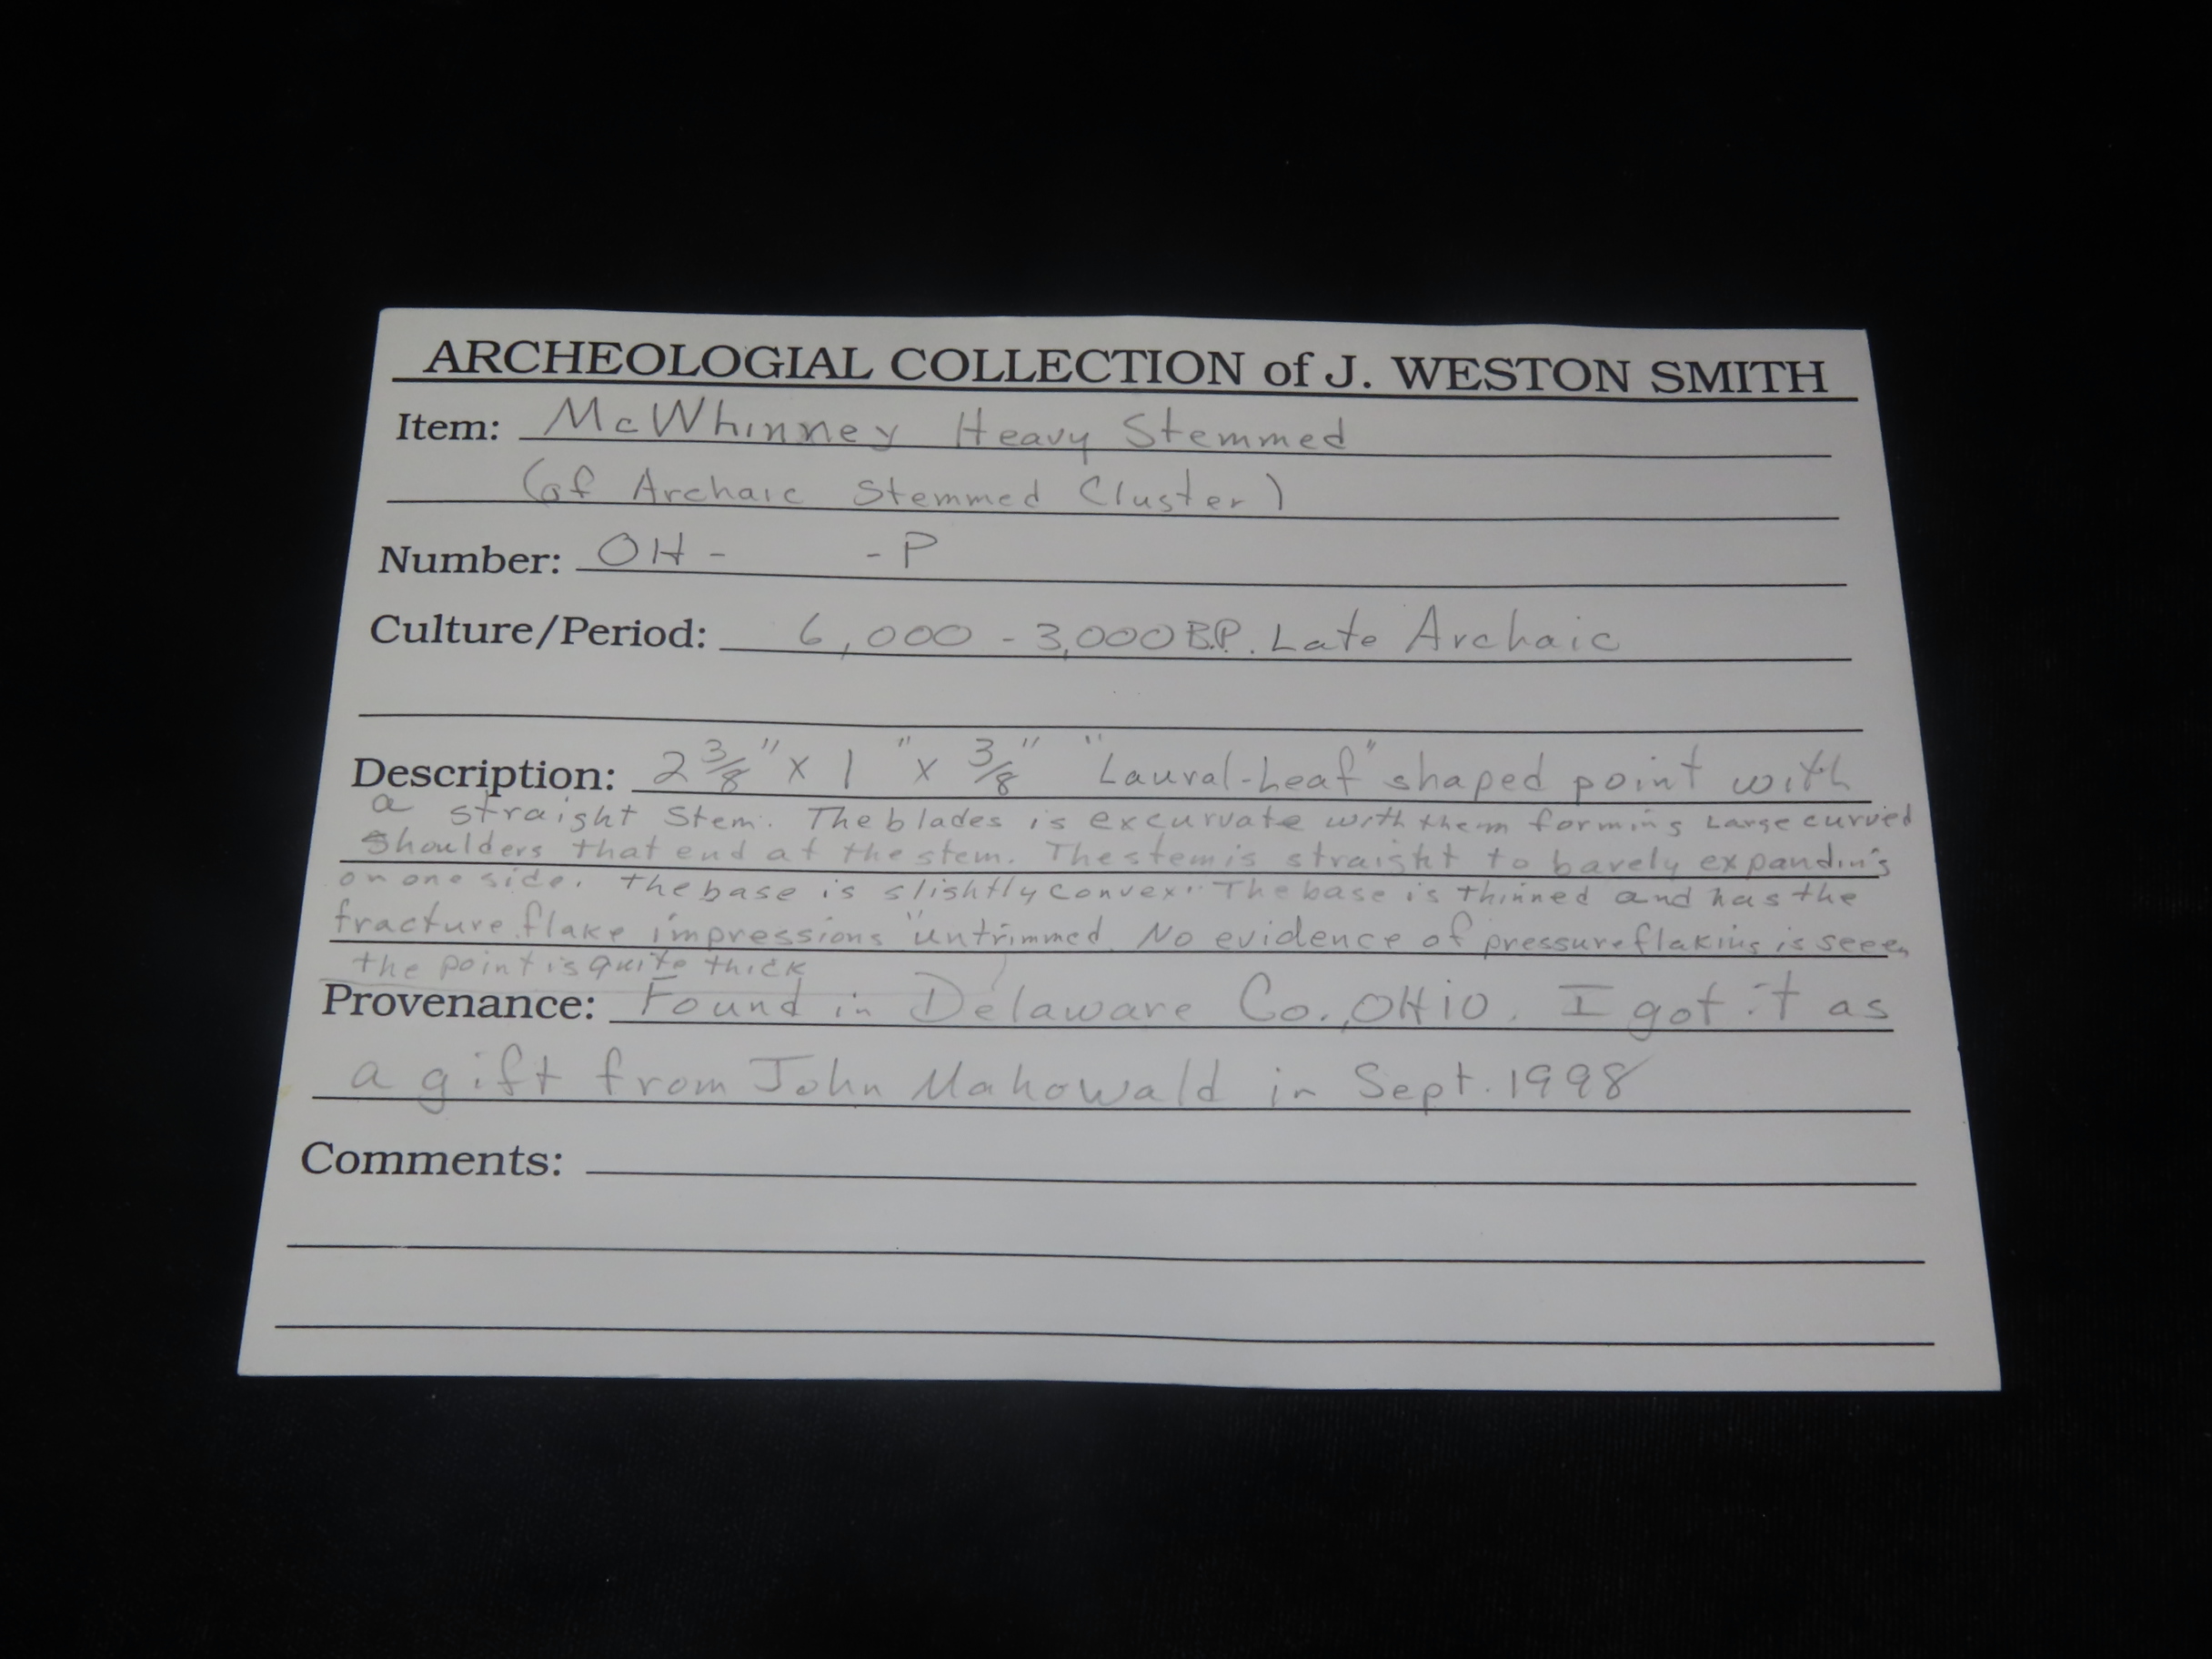 ARCHEOLOGIAL COLLECTION of J. WESTON SMITH
Item: McWhinney Heavy Stemmed
(of Archaic Stemmed Cluster)
Number: OH - - P
Culture/Period: 6,000 - 3,000 B.P. Late Archaic
Description: 2 3/8" x 1 " x 3/8" "Laural-Leaf" shaped point with
a straight Stem. The blades is excurvate with them forming Large curved
Shoulders that end at the stem. The stem is straight to barely expanding
on one side. the base is slightly convex. The base is thinned and has the
fracture flake impressions "untrimmed. No evidence of pressure flaking is seeen
the point is quite thick
Provenance: Found in Delaware Co., OHio. I got it as
a gift from John Mahowald in Sept. 1998
Comments: